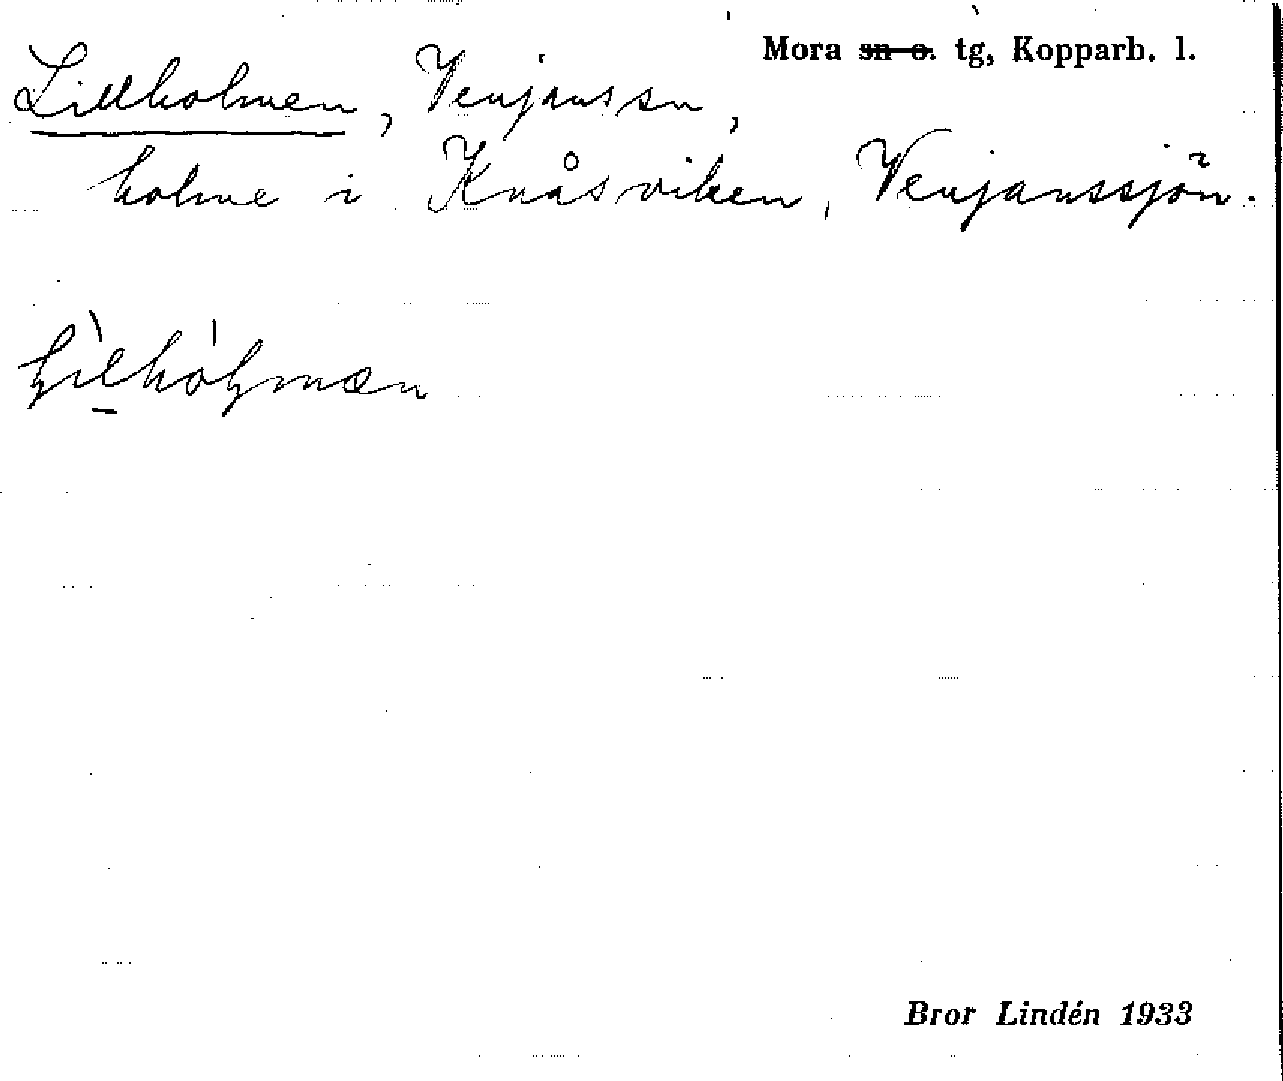 Mora ~~sn o.~~ tg, Kopparb. l.
Lillholmen, Venjans sn,
holme i Knåsviken, Venjanssjön.
Bror Lindén 1933